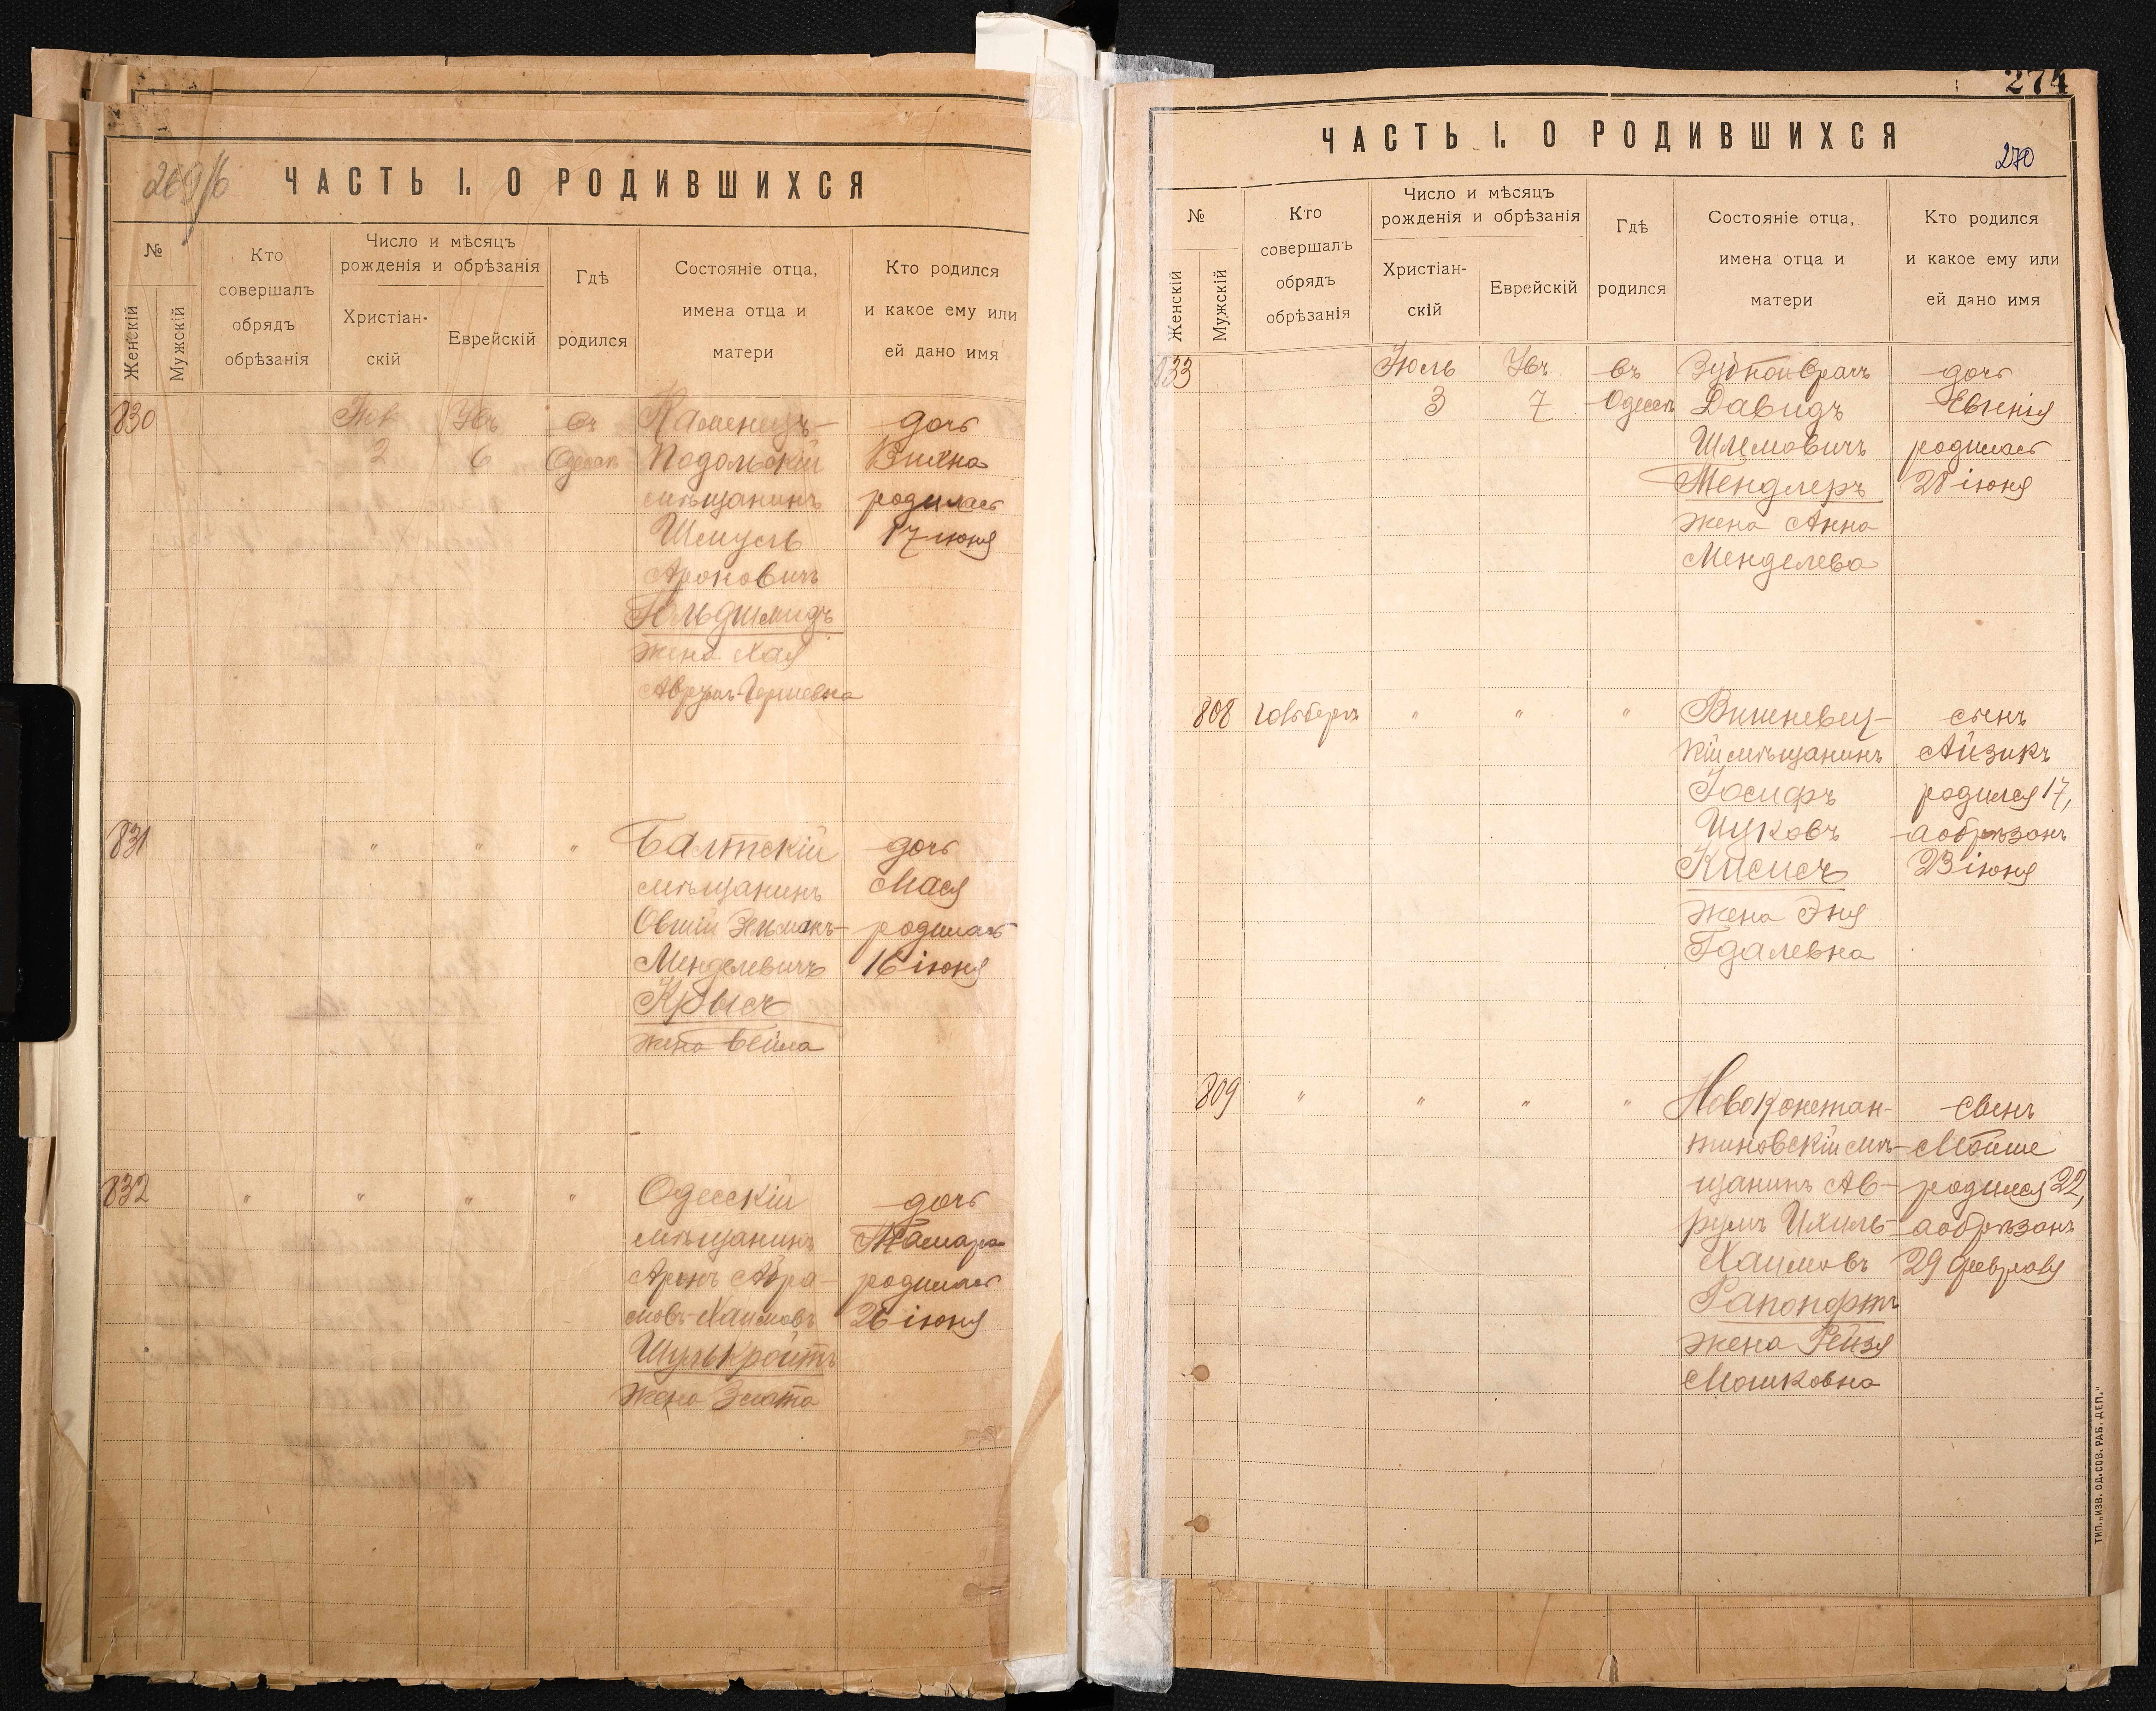 269/б
ЧАСТЬ I. О РОДИВШИХСЯ
№
Женскій
Мужскій
Кто
совершалъ
обрядъ
обрѣзанія
Число и мѣсяцъ
рожденія и обрѣзанія
Христіан-
скій
Еврейскій
Гдѣ
родился
Состояніе отца,
имена отца и
матери
Кто родился
и какое ему или
ей дано имя
830
2
6
въ
Одессѣ
Каменецъ-
Подольскій
мѣщанинъ
Шмуль
Ароновичъ
Гольдшмидъ
жена Хая
Аврумъ-Гершевна
дочь
родилась
17 июня
831
" " "
Балтскій
мѣщанинъ
Овшій Зельманъ-
Менделевичъ
жена Бейла
дочь
Мася
родилась
16 іюня
832
" " " "
Одесскій
мѣщанинъ
Аронъ Абра-
мовъ-Хаимовъ
Шулькройтъ
жена Злата
дочь
Тамара
родилась
26 іюня
274
270
ЧАСТЬ I. О РОДИВШИХСЯ
№
Женскій
Мужскій
Кто
совершалъ
обрядъ
обрѣзанія
Число и мѣсяцъ
рожденія и обрѣзанія
Христіан-
скій
Еврейскій
Гдѣ
родился
Состояніе отца,
имена отца и
матери
Кто родился
и какое ему или
ей дано имя
833
Іюль
3
7
въ
Одессѣ
Зубной врачъ
Давидъ
Шлемовичъ
Тендлеръ
жена Анна
Менделева
дочь
Евгенія
родилась
28 іюня
808
" " "
Вишневец-
кій мѣщанинъ
Іосифъ
Ицковъ
жена Эня
Гдалевна
сынъ
Айзикъ
родился 17,
а обрѣзанъ
23 іюня
809
" " " "
Новоконстан-
тиновскій мѣ-
щанинъ Ав-
румъ Ихиль-
Хаимовъ
Рапопортъ
жена Рейзя
Мошковна
сынъ
Мойше
родился 22,
а обрѣзанъ
29 февраля
ТИП. „ИЗВ. ОД. СОВ. РАБ. ДЕП."